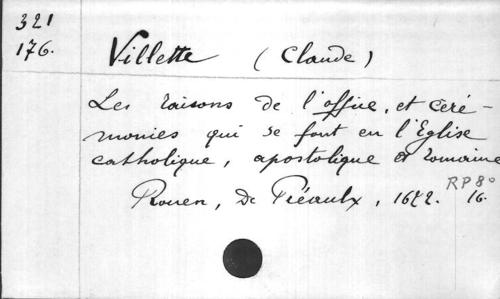 321
176. Villette (Claude)
Les raisons de l'office, et céré-
monies qui se font en l'Eglise
catholique, apostolique et romaine
RP 8°
Rouen, De Préaulx, 1622. 16.